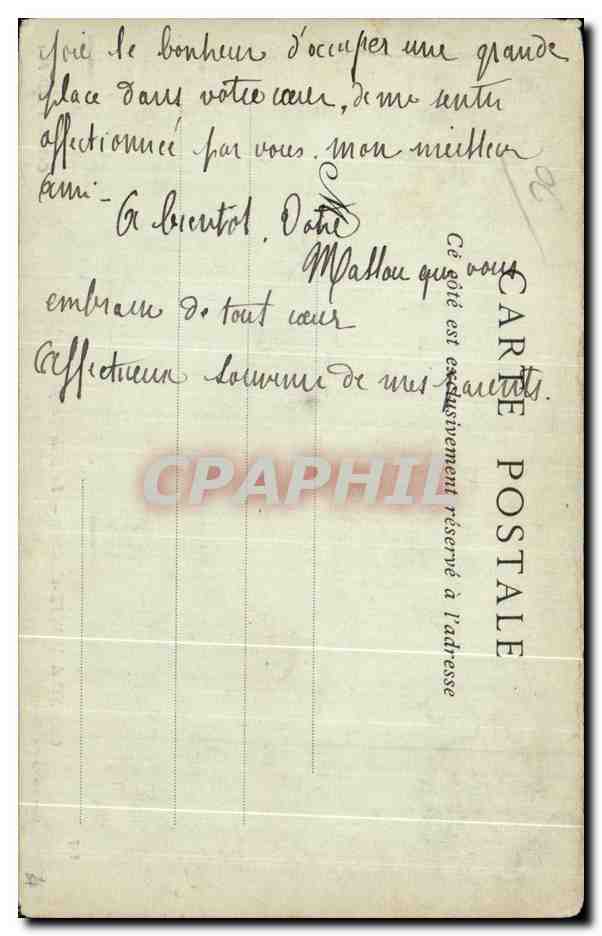 joie le bonheur d'occuper une grande
place dans votre cœur, de me sentir
affectionnée par vous. mon meilleur
ami -
A bientot. Votre
qui vous
embrasse de tout cœur
Affectueux souvenir de mes parents.
CARTE POSTALE
Ce côté est exclusivement réservé à l'adresse
CPAPHIL